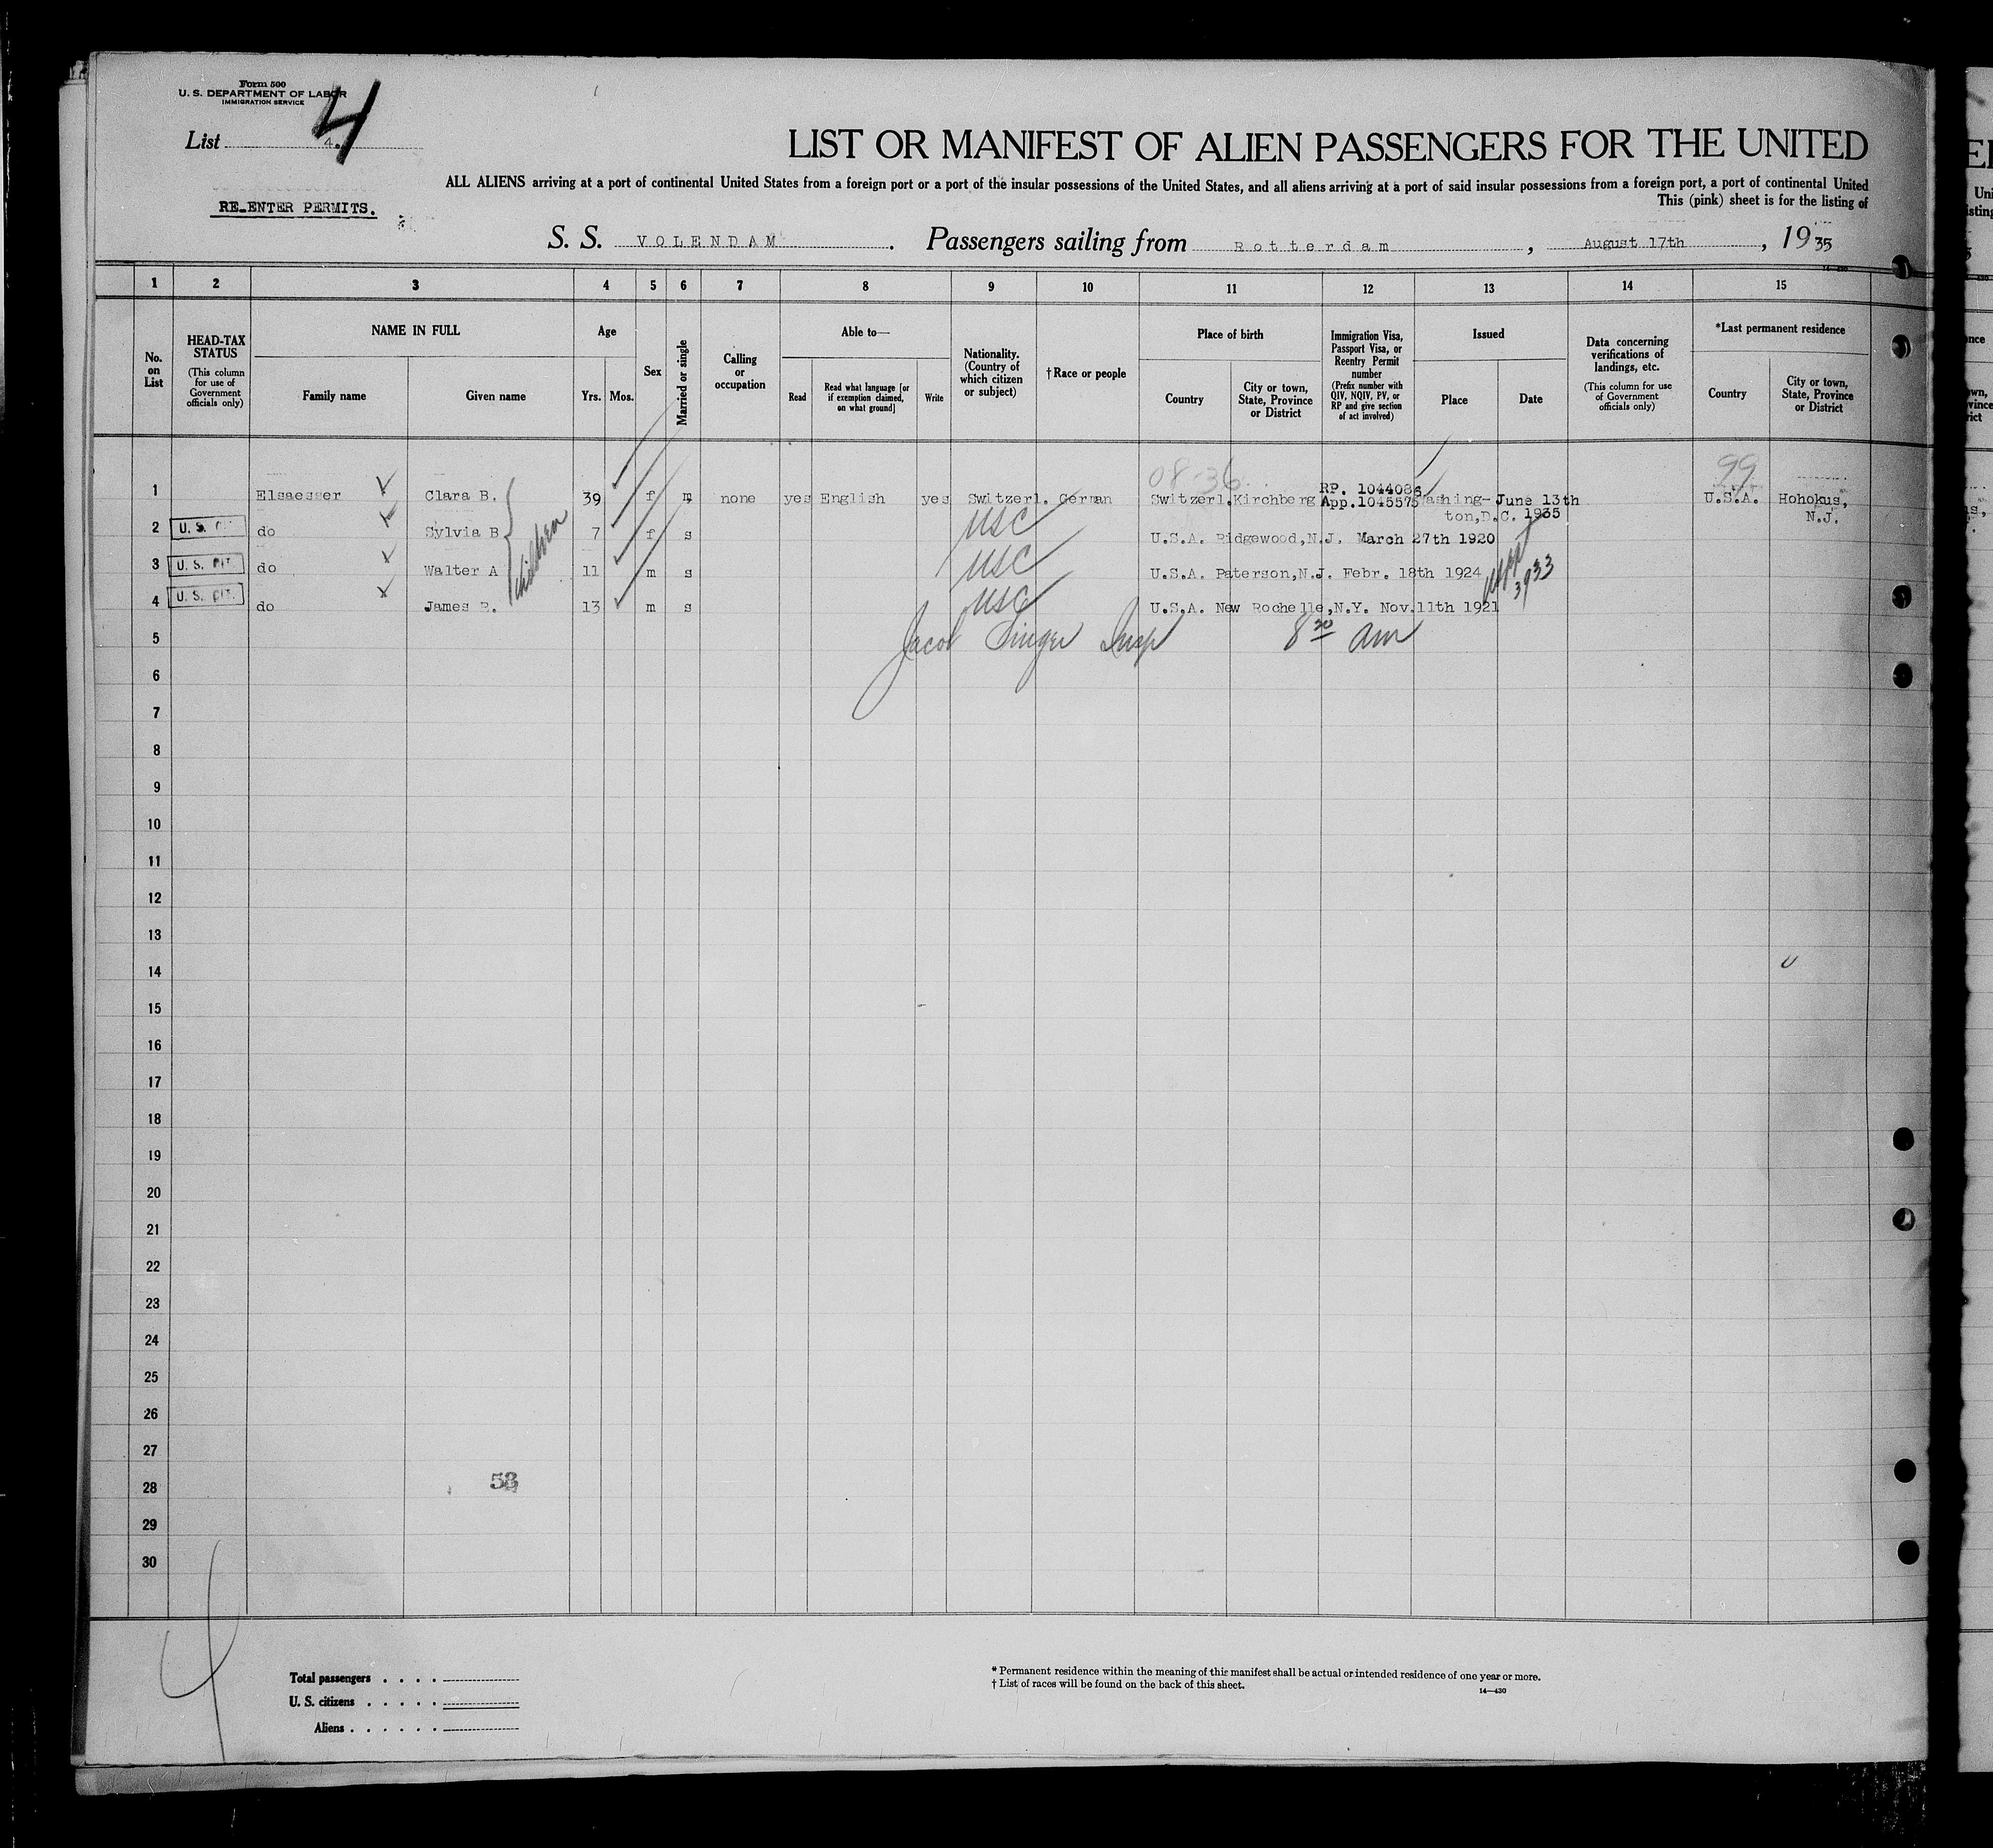 Form 500
U. S. DEPARTMENT OF LABOR
IMMIGRATION SERVICE
List 4. 4
RE-ENTER PERMITS.
LIST OR MANIFEST OF ALIEN PASSENGERS FOR THE UNITED
ALL ALIENS arriving at a port of continental United States from a foreign port or a port of the insular possessions of the United States, and all aliens arriving at a port of said insular possessions from a foreign port, a port of continental United
This (pink) sheet is for the listing of
S. S. VOLENDAM . Passengers sailing from Rotterdam , August 17th , 1935
1 2 3 4 5 6 7 8 9 10 11 12 13 14 15
No. on List
HEAD-TAX STATUS (This column for use of Government officials only)
NAME IN FULL
Family name
Given name
Age
Yrs. Mos.
Sex
Married or single
Calling or occupation
Able to—
Read
Read what language [or if exemption claimed, on what ground]
Write
Nationality. (Country of which citizen or subject)
† Race or people
Place of birth
Country
City or town, State, Province or District
Immigration Visa, Passport Visa, or Reentry Permit number (Prefix number with QIV, NQIV, PV, or RP and give section of act involved)
Issued
Place
Date
Data concerning verifications of landings, etc. (This column for use of Government officials only)
*Last permanent residence
Country
City or town, State, Province or District
08-36 99
1 Elsaesser Clara B. 39 f m none yes English yes Switzerl. German Switzerl. Kirchberg RP. 1044086 App.1045575 Washington, D.C. June 13th 1935 U.S.A. Hohokus, N.J.
2 U. S. CIT. do Sylvia B 7 f s USC U.S.A. Ridgewood, N.J. March 27th 1920
3 U. S. CIT. do Walter A 11 m s USC U.S.A. Paterson, N.J. Febr. 18th 1924
4 U. S. CIT. do James B. 13 m s USC U.S.A. New Rochelle, N.Y. Nov. 11th 1921
children
3933
5 Jacob Singer Insp 8 20 am
6
7
8
9
10
11
12
13
14
15
16
17
18
19
20
21
22
23
24
25
26
27
28 53
29
30
4
Total passengers . . . .
U. S. citizens . . . . .
Aliens . . . . . .
* Permanent residence within the meaning of this manifest shall be actual or intended residence of one year or more.
† List of races will be found on the back of this sheet.
14—430